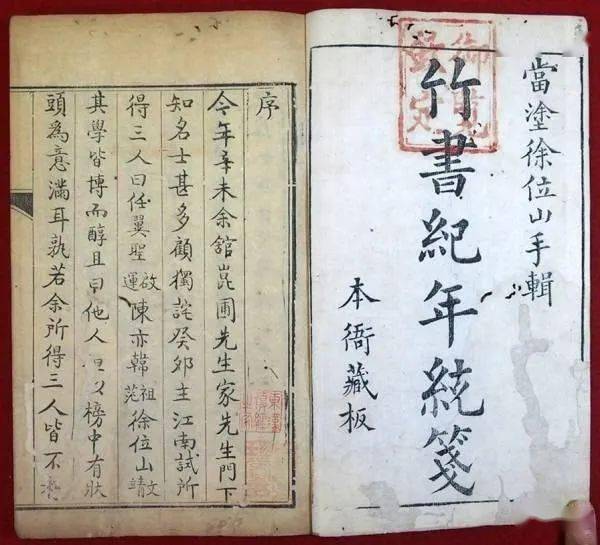 當塗徐位山手輯
竹書紀年統箋
本衙藏板
御覽
欽定
序
今年辛未余舘崑圃先生家先生門下
知名士甚多顧獨詫癸卯主江南試所
得三人曰任翼聖啟運陳亦韓祖范徐位山文靖
其學皆博而醇且曰他人以榜中有狀
頭為意滿耳孰若余所得三人皆不